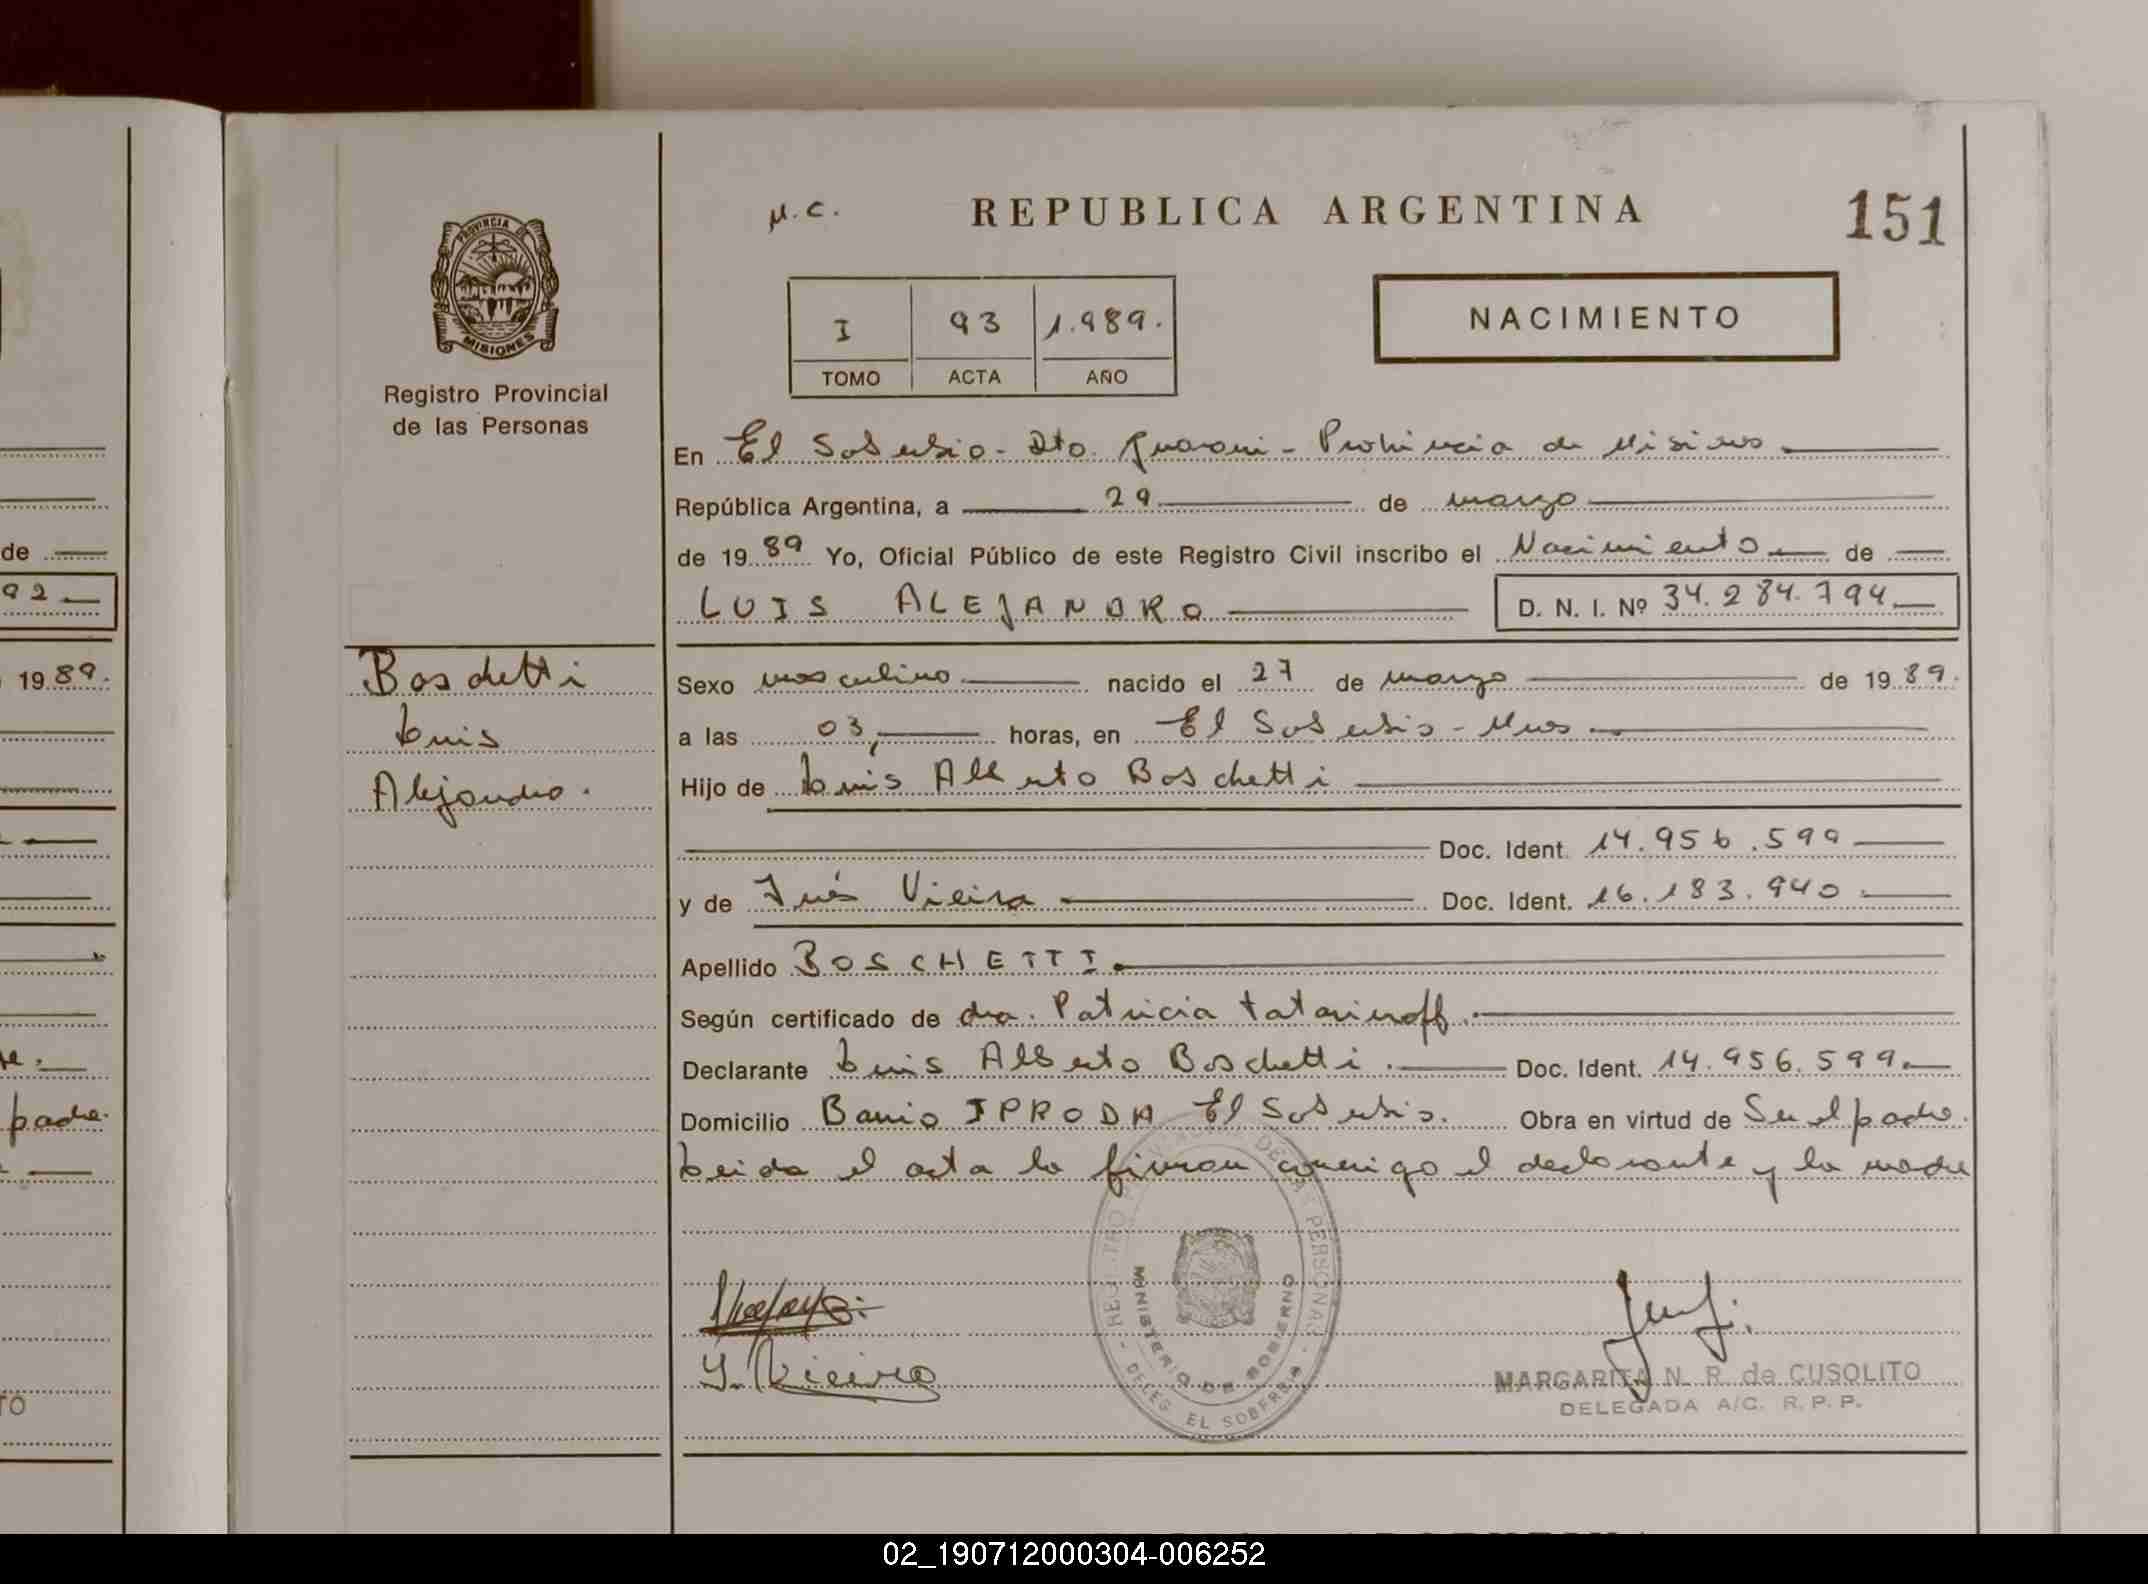 de
92
1989.
padre.
TO
PROVINCIA DE
MISIONES
Registro Provincial
de las Personas
Boschetti
Luis
Alejandro.
REPUBLICA ARGENTINA
151
I 93 1.989.
TOMO ACTA AÑO
NACIMIENTO
En El Soberbio - Dto. Guarani - Provincia de Misiones
República Argentina, a 29 de marzo
de 1989 Yo, Oficial Público de este Registro Civil inscribo el Nacimiento de
LUIS ALEJANDRO D. N. I. Nº 34.284.794
Sexo masculino nacido el 27 de marzo de 1989.
a las 03, horas, en El Soberbio - Mnes
Hijo de Luis Alberto Boschetti
Doc. Ident. 14.956.599
y de Inés Vieira Doc. Ident. 16.183.940
Apellido BOSCHETTI
Según certificado de dra. Patricia Tatarinoff.
Declarante Luis Alberto Boschetti. Doc. Ident. 14.956.599.
Domicilio Barrio IPRODA El Soberbio. Obra en virtud de Ser el padre.
Leida el acta la firman conmigo el declarante y la madre
REGISTRO PROVINCIAL DE LAS PERSONAS
MINISTERIO DE GOBIERNO
DELEG. EL SOBERBIO
MARGARITA N. R. de CUSOLITO
DELEGADA A/C. R.P.P.
02_190712000304-006252